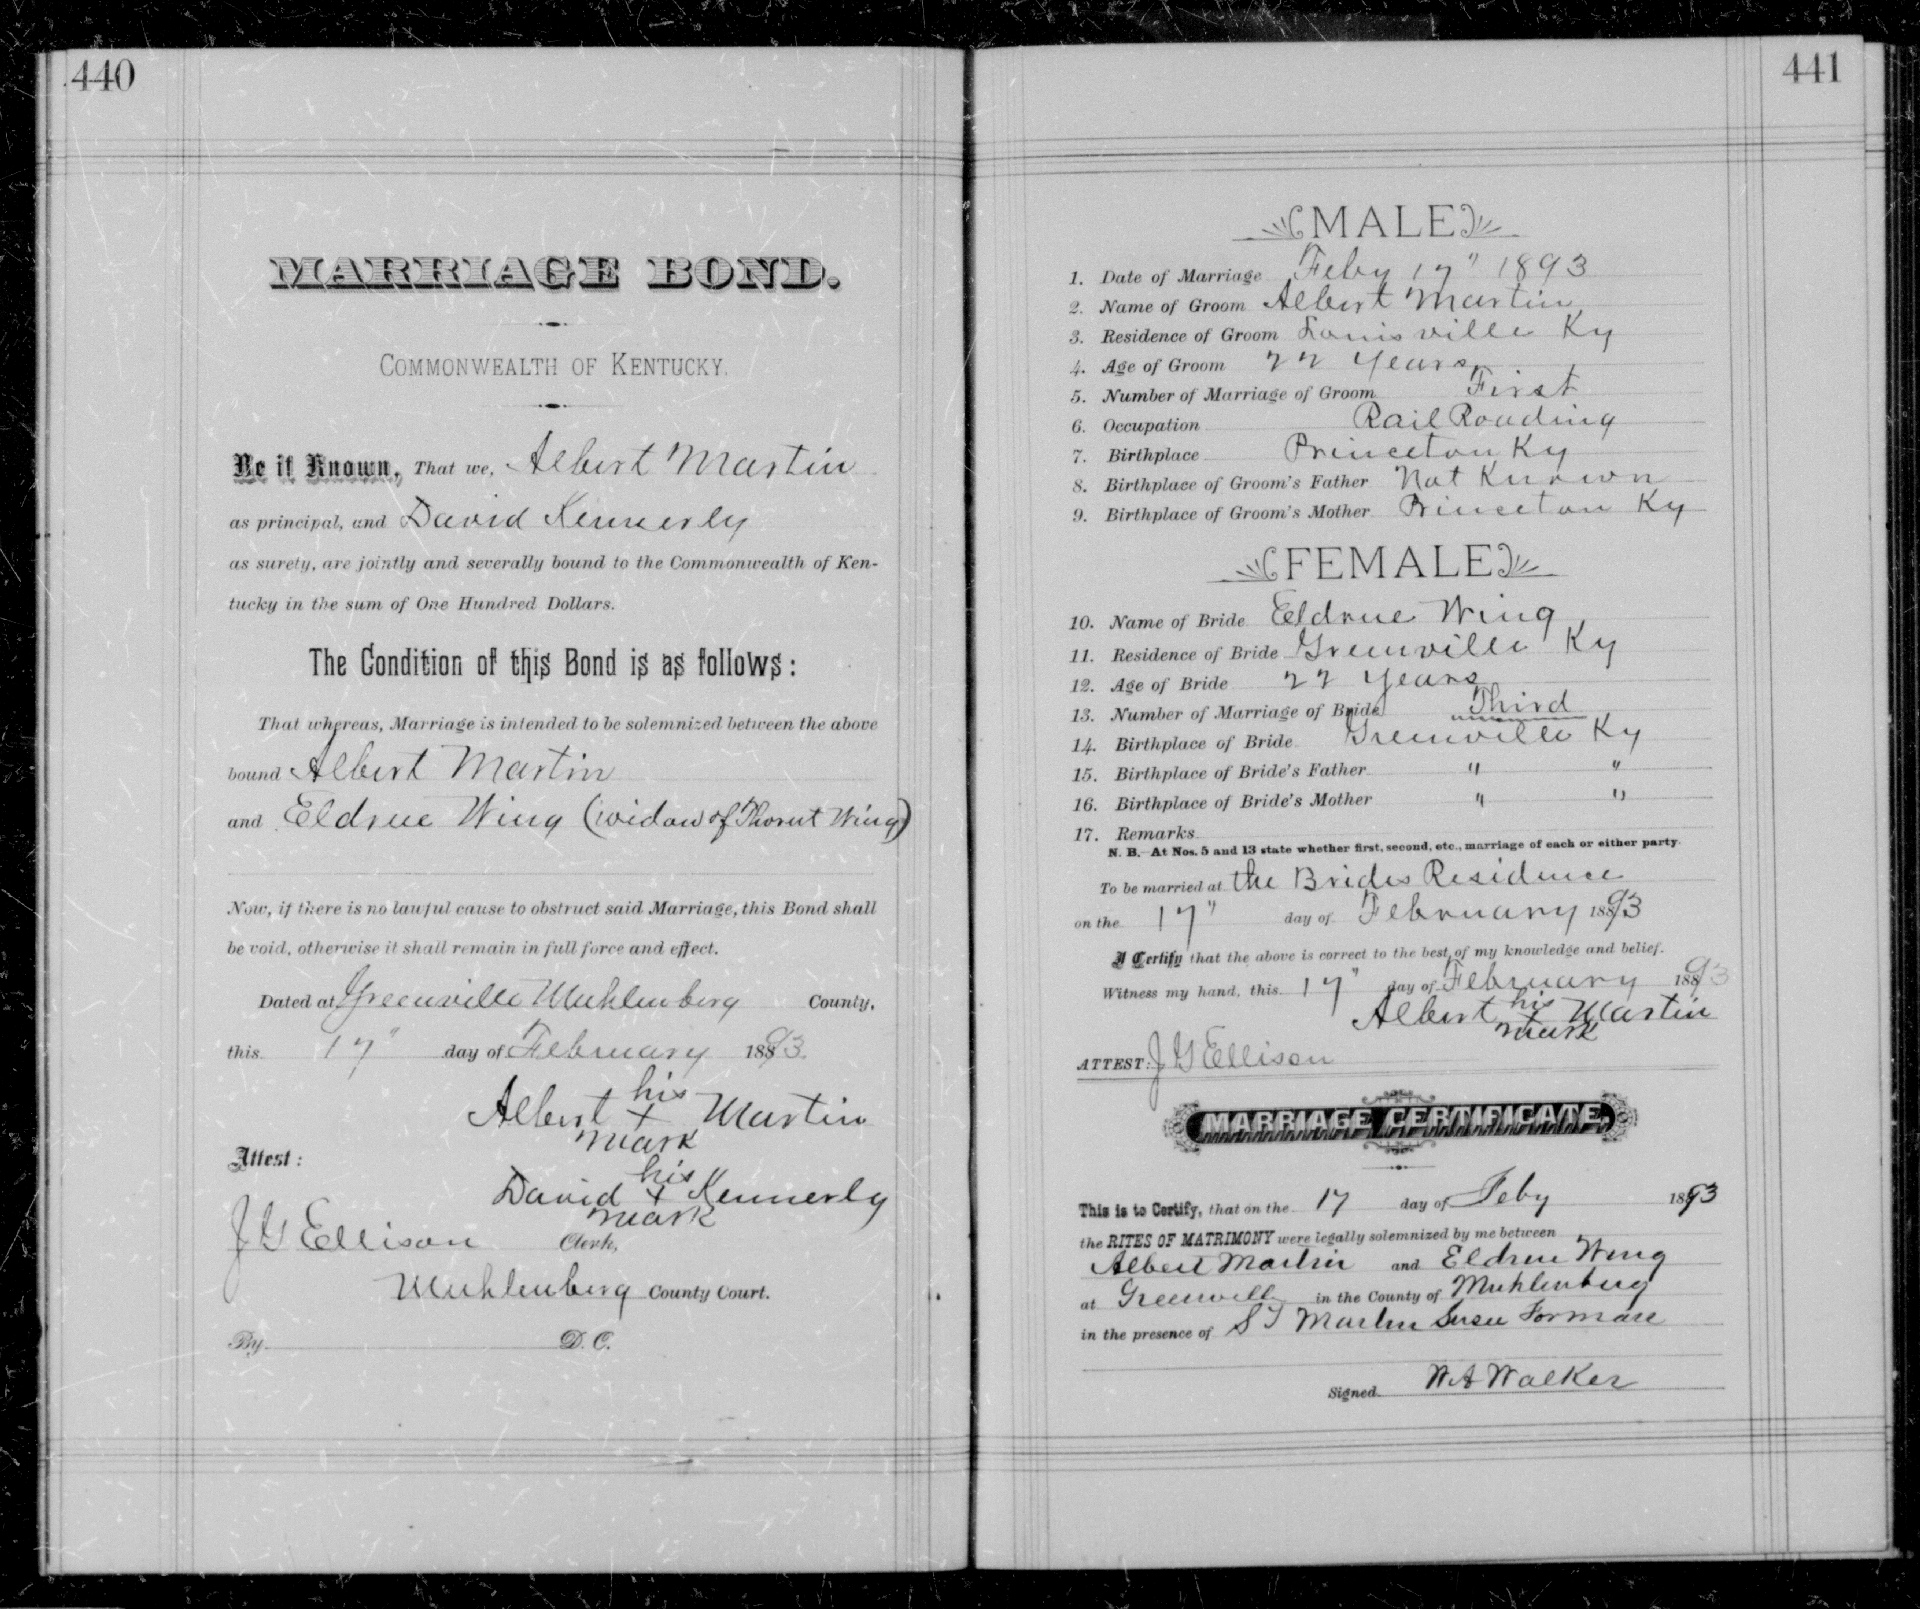 440
MARRIAGE BOND.
COMMONWEALTH OF KENTUCKY.
Be it Known, That we, Albert Martin
as principal, and David Kennerly
as surety, are jointly and severally bound to the Commonwealth of Ken-
tucky in the sum of One Hundred Dollars.
The Condition of this Bond is as follows:
That whereas, Marriage is intended to be solemnized between the above
bound Albert Martin
and Eldrue Wing (widow of Wing)
Now, if there is no lawful cause to obstruct said Marriage, this Bond shall
be void, otherwise it shall remain in full force and effect.
Dated at Greenville Muhlenberg County,
this 17" day of February 1893.
Albert his x mark Martin
Attest:
David his x mark Kennerly
J G Ellison Clerk,
Muhlenberg County Court.
By D. C.
441
MALE
1. Date of Marriage Feby 17" 1893
2. Name of Groom Albert Martin
3. Residence of Groom Louisville Ky
4. Age of Groom 22 Years
5. Number of Marriage of Groom First
6. Occupation Rail Roading
7. Birthplace Princeton Ky
8. Birthplace of Groom's Father Not Known
9. Birthplace of Groom's Mother Princeton Ky
FEMALE
10. Name of Bride Eldrue Wing
11. Residence of Bride Greenville Ky
12. Age of Bride 22 Years
13. Number of Marriage of Bride Third
14. Birthplace of Bride Greenville Ky
15. Birthplace of Bride's Father " "
16. Birthplace of Bride's Mother " "
17. Remarks
N. B.—At Nos. 5 and 13 state whether first, second, etc., marriage of each or either party.
To be married at the Brides Residence
on the 17" day of February 1893
I Certify that the above is correct to the best of my knowledge and belief.
Witness my hand, this 17" day of February 1893
Albert his x mark Martin
ATTEST: J G Ellison
MARRIAGE CERTIFICATE.
This is to Certify, that on the 17 day of Feby 1893
the RITES OF MATRIMONY were legally solemnized by me between
Albert Martin and Eldrue Wing
at Greenvill in the County of Muhlenberg
in the presence of S T Martin Susee
Signed W A Walker